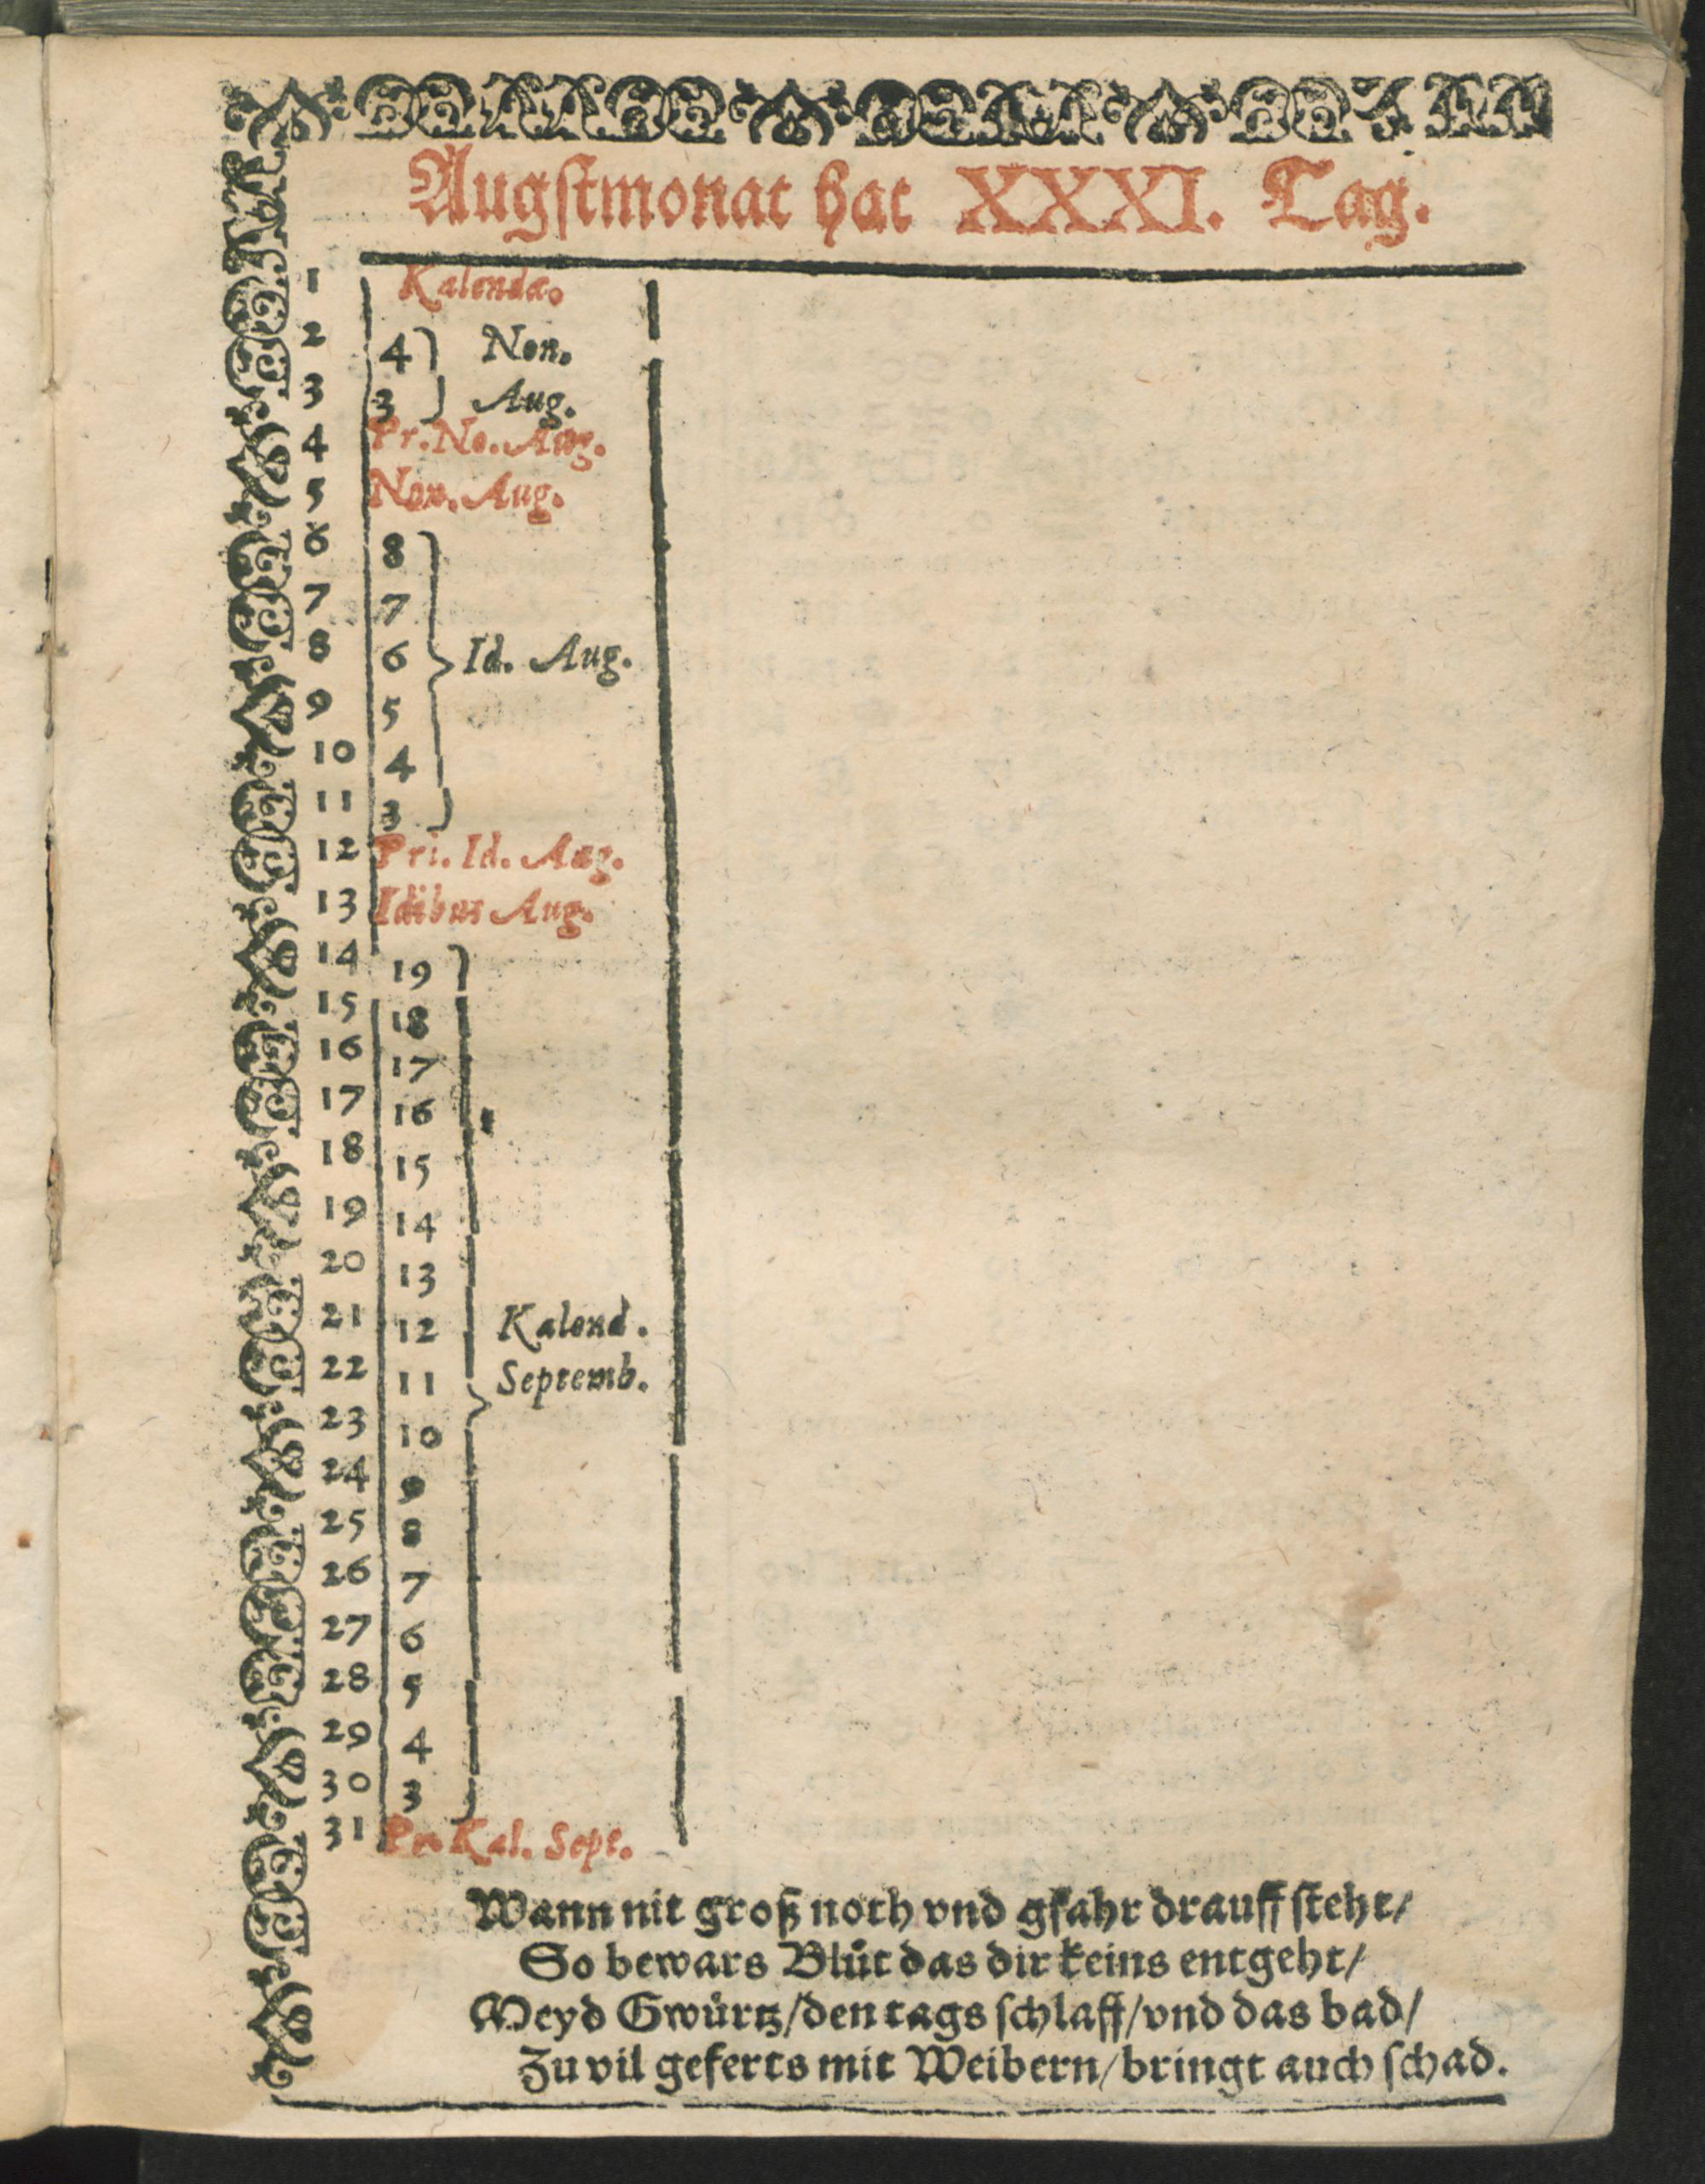 Augstmonat hat XXXI. Tag.
1 Kalendæ.
2 4 Non.
3 3 Aug.
4 Pr. No. Aug.
5 Non. Aug.
6 8
7 7
8 6 Id. Aug.
9 5
10 4
11 3
12 Pri. Id. Aug.
13 Idibus Aug.
14 19
15 18
16 17
17 16
18 15
19 14
20 13
21 12 Kalend.
22 11 Septemb.
23 10
24 9
25 8
26 7
27 6
28 5
29 4
30 3
31 Pr. Kal. Sept.
Wann nit groß noth vnd gfahr drauff steht/
So bewars Blůt das dir keins entgeht/
Meyd Gwürtz/den tags schlaff/vnd das bad/
Zu vil geferts mit Weibern/bringt auch schad.